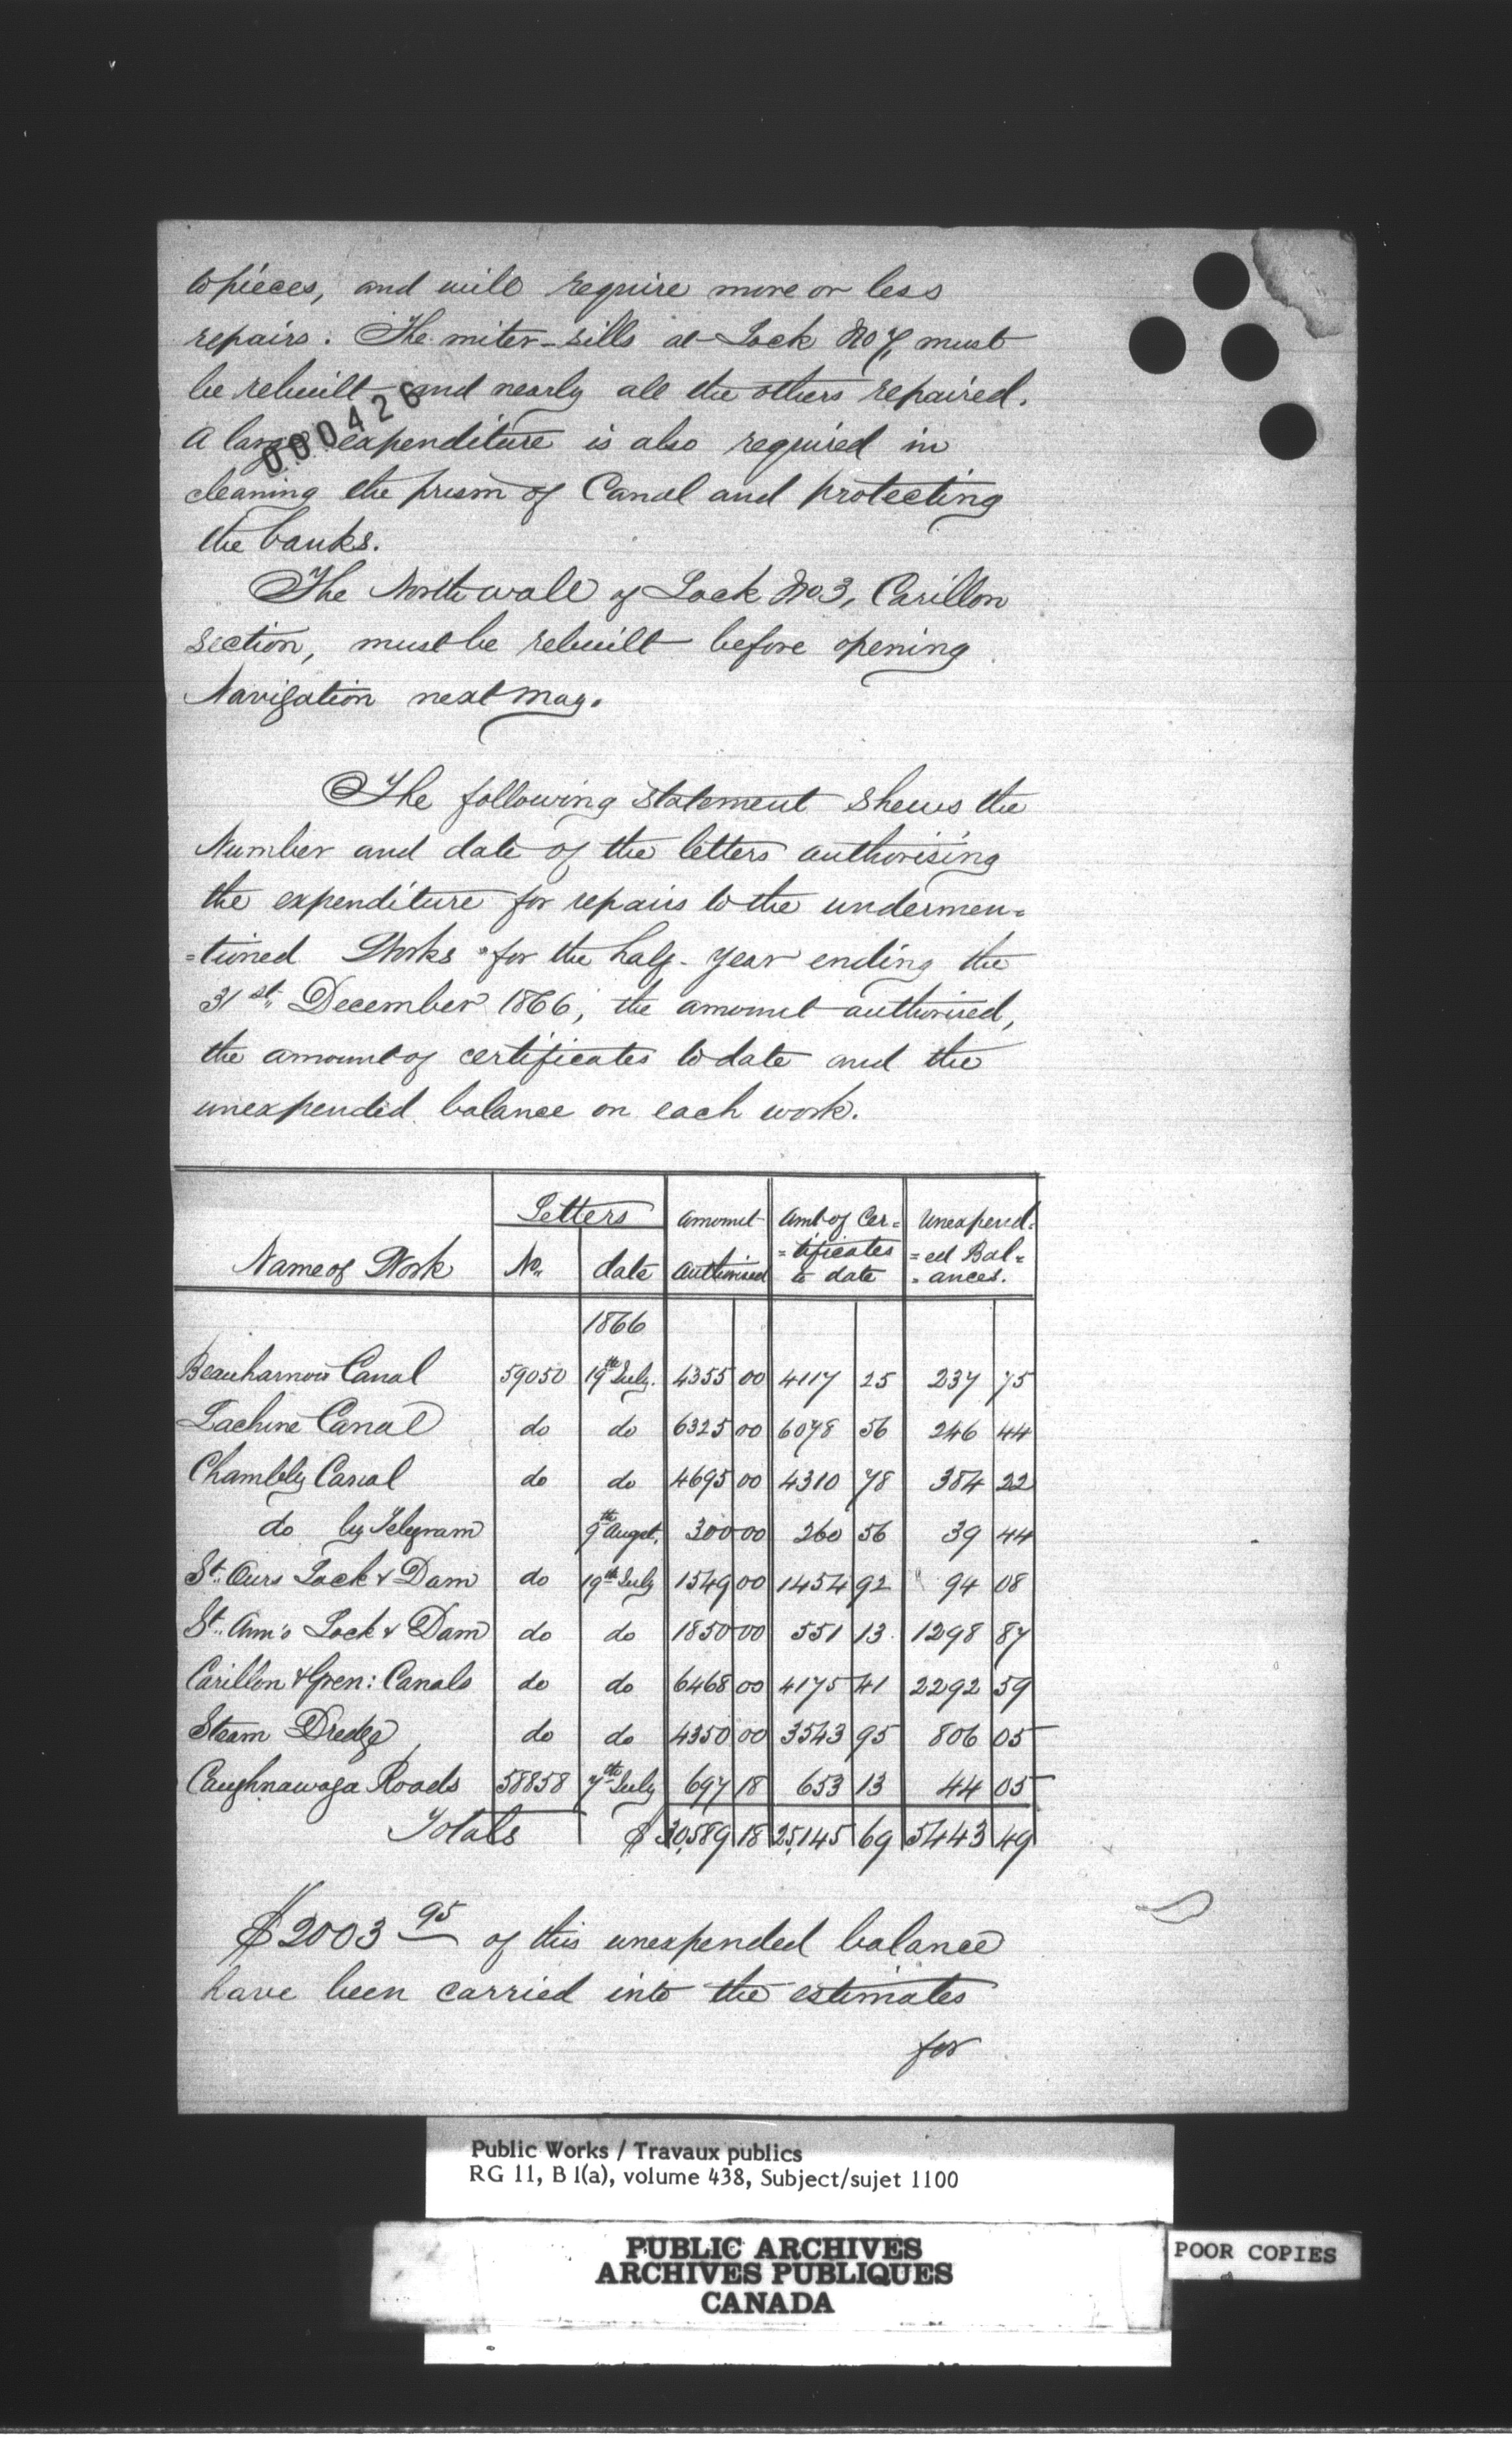 to pieces, and will require more or less
repairs. The miter-sills at Lock No 7, must
be rebuilt and nearly all the others repaired.
000426
A large expenditure is also required in
cleaning the prism of Canal and protecting
the banks.
The North wall of Lock No 3, Carillon
section, must be rebuilt before opening
Navigation next May.
The following statement shews the
Number and date of the letters authorising
the expenditure for repairs to the undermen=
=tioned Works for the half-year ending the
31st. December 1866; the amount authorised,
the amount of certificates to date and the
unexpended balance on each work.
Letters Amount Amt of Cer= Unexpend=
Name of Work No. date authorised =tificates to date =ed Bal= =ances.
1866
Beauharnois Canal 59050 19th July. 4355 00 4117 25 237 75
Lachine Canal do do 6325 00 6078 56 246 44
Chambly Canal do do 4695 00 4310 78 384 22
do by Telegram 9th Augst. 300 00 260 56 39 44
St. Ours Lock & Dam do 19th July 1549 00 1454 92 94 08
St. Ann's Lock & Dam do do 1850 00 551 13 1298 87
Carillon & Gren: Canals do do 6468 00 4175 41 2292 59
Steam Dredge do do 4350 00 3543 95 806 05
Caughnawaga Roads 58858 7th July 697 18 653 13 44 05
Totals $ 30,589 18 25,145 69 5443 49
$2003 95 of this unexpended balance
have been carried into the estimates
for
Public Works / Travaux publics
RG 11, B 1(a), volume 438, Subject/sujet 1100
PUBLIC ARCHIVES
ARCHIVES PUBLIQUES
CANADA
POOR COPIES